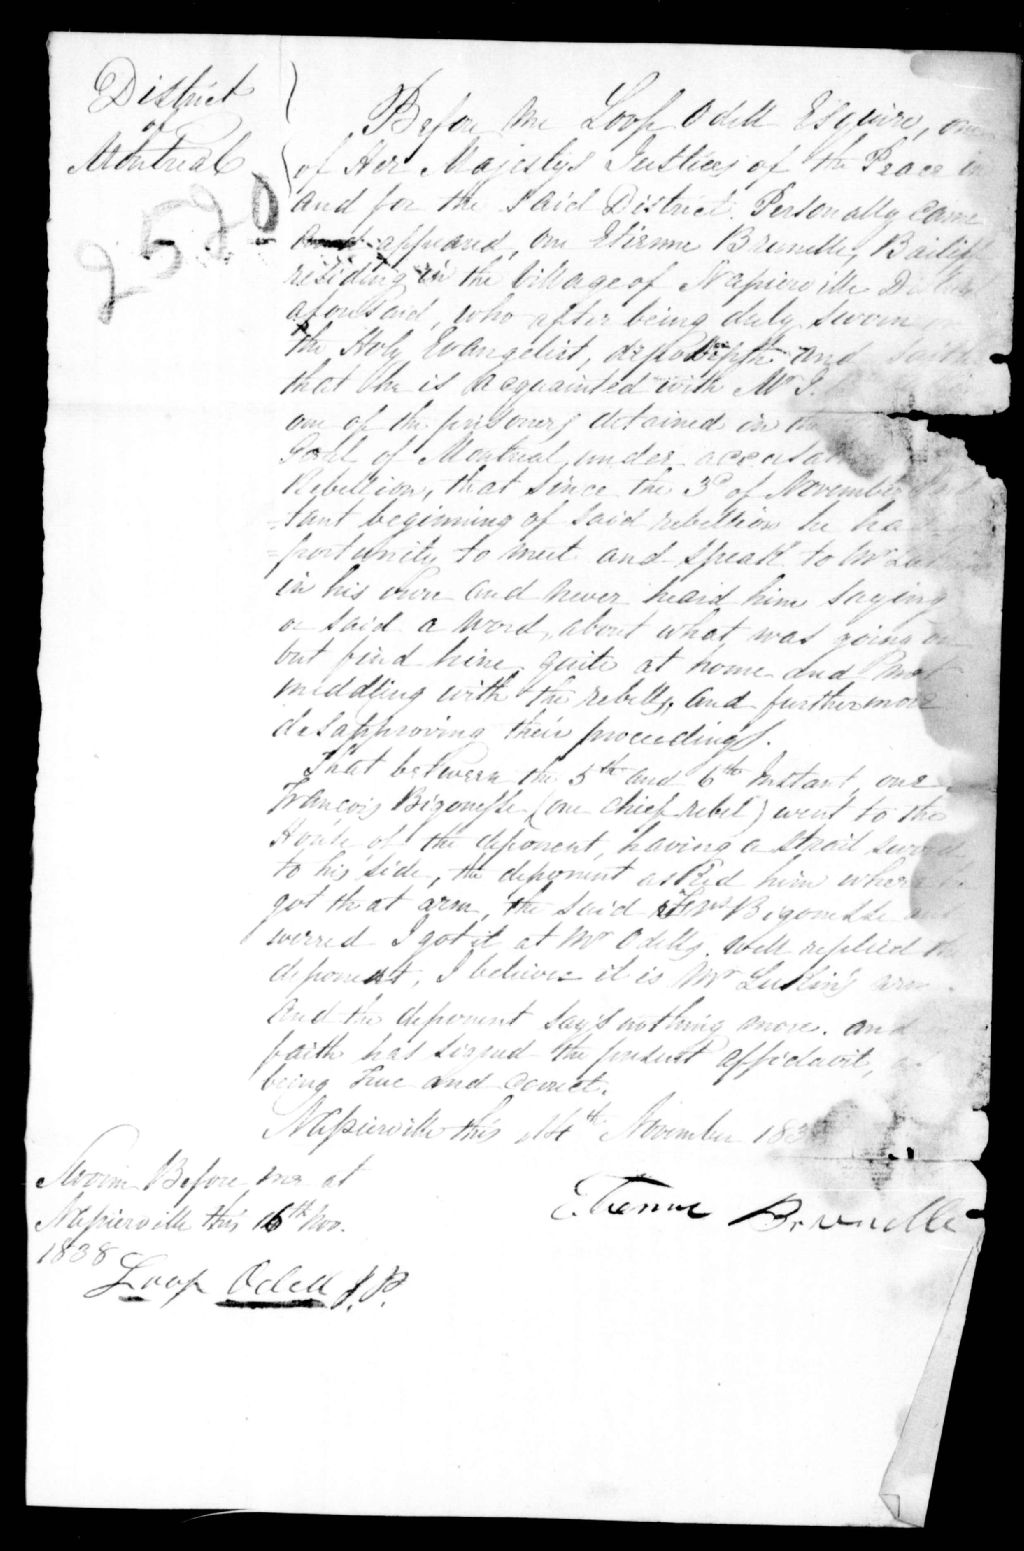 District
of
Montreal
2520
Before Me Loop Odell Esquire, one
of Her Majestys Justices of the Peace in
and for the said District. Personally came
and appeared, one Etienne Brunelle, Bailiff
residing in the Village of Napierville District
aforesaid, who after being duly sworn on
the Holy Evangelist, deposeth and saith
that he is acquainted with Mr J.
one of the prisoners detained in the
Goal of Montreal, under accusa
Rebellion, that since the 3d of November Ins
=tant beginning of said rebellion he had op
=portunity to meet and speak to Mr Lu
in his own and never heard him saying
or said a word, about what was going on
but find him quite at home and not
middling with the rebells, and furthermore
desapproving their proceedings.
That between the 5th and 6th Instant, one
François Bigonesse (one chief rebel) went to the
House of the deponent, having a strait sword
to his side, the deponent asked him where he
got that arm, the said Frs Bigonesse ans
werred I got it at Mr Odells, well replied the
deponent, I believe it is Mr Lukin's arm.
And the deponent say's nothing more. and
faith has signed the present affidavit, as
being True and Correct.
Napierville this 14th November 1838
Sworn Before me at
Napierville this 16th Nov.
1838
Loop Odell J.P.
Etienne Brunelle